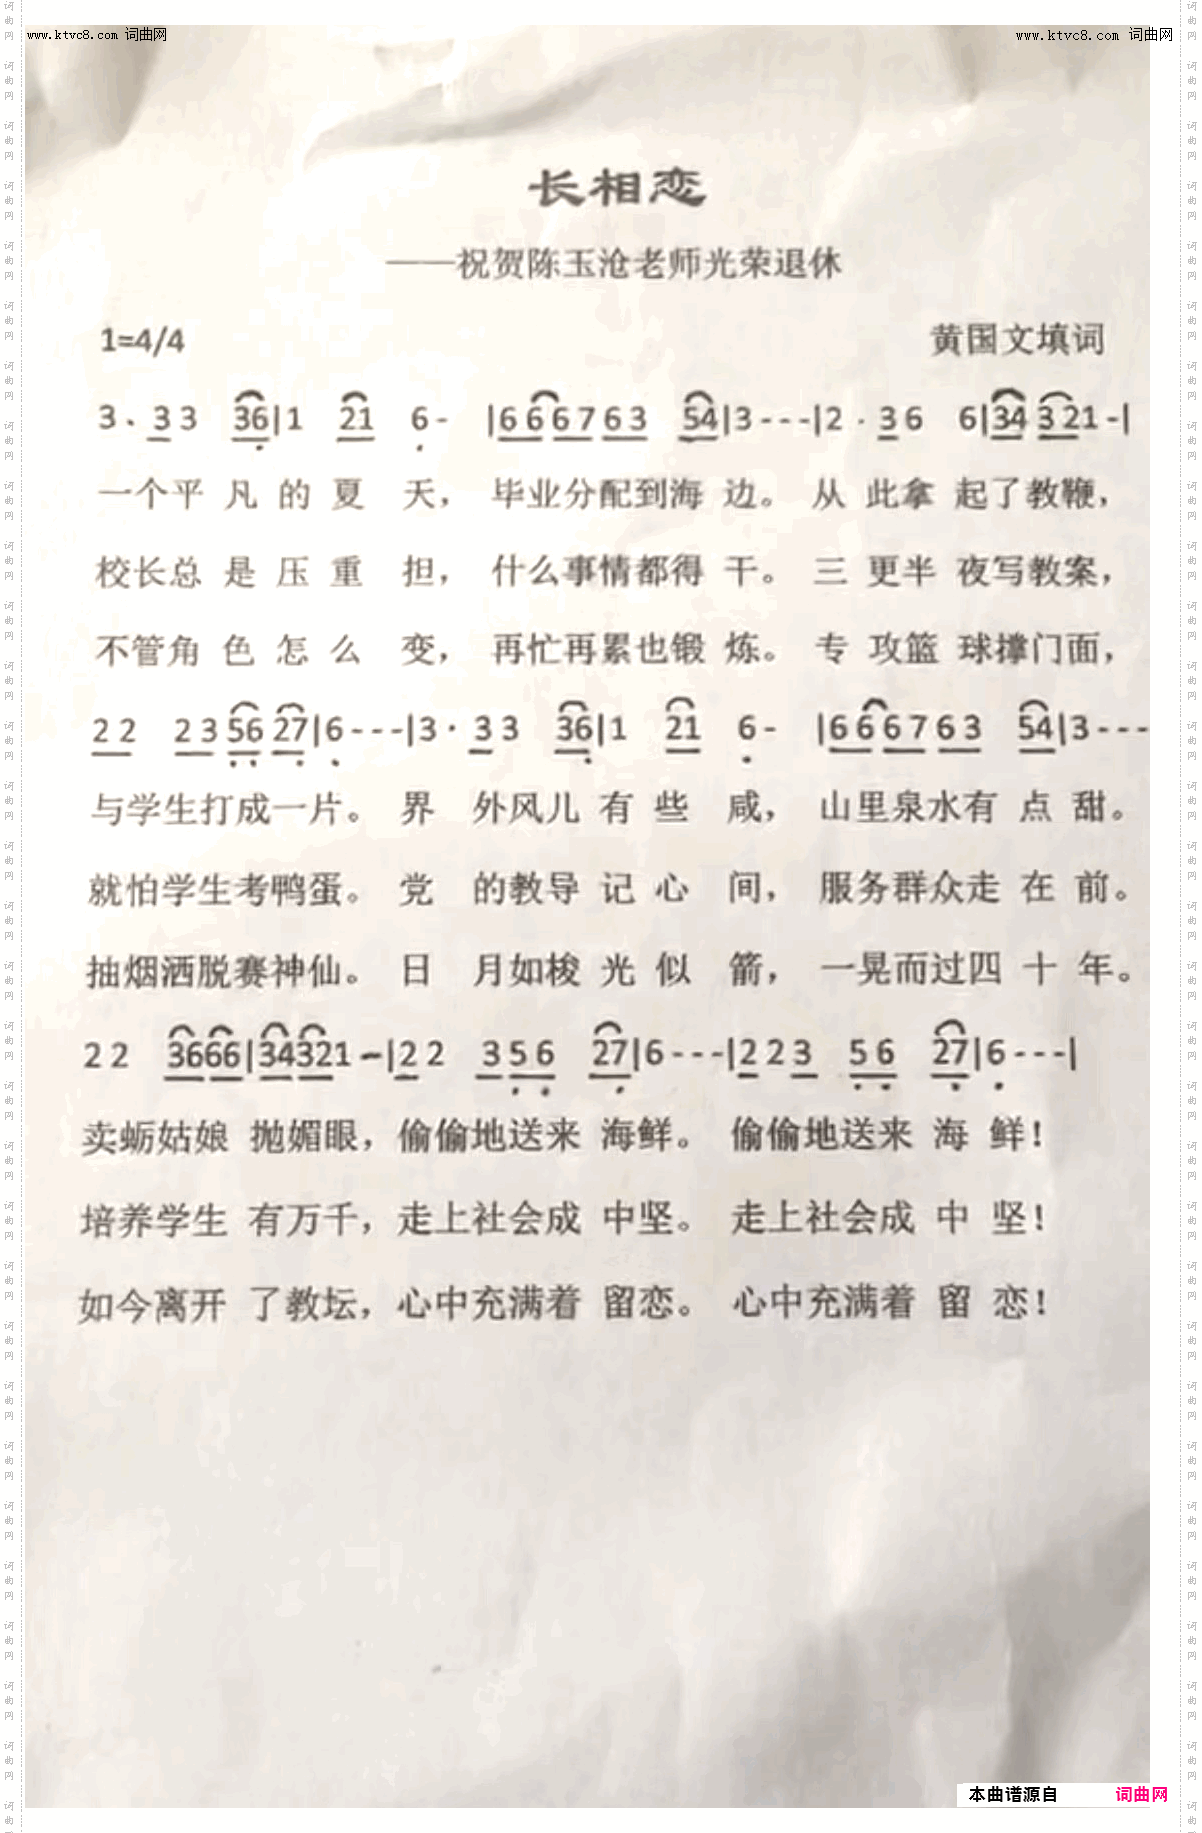 www.ktvc8.com 词曲网
www.ktvc8.com 词曲网
长相恋
——祝贺陈玉沧老师光荣退休
1=4/4 黄国文填词
3、33 36|1 21 6- |666763 54|3---|2·36 6|34 321-|
一个平 凡 的 夏 天， 毕业分配到海 边。 从 此拿 起了教鞭，
校长总 是 压 重 担， 什么事情都得 干。 三 更半 夜写教案，
不管角 色 怎 么 变， 再忙再累也锻 炼。 专 攻篮 球撑门面，
22 23 56 27|6---|3·33 36|1 21 6- |666763 54|3---
与学生打成一片。 界 外风儿 有 些 咸， 山里泉水有 点 甜。
就怕学生考鸭蛋。 党 的教导 记 心 间， 服务群众走 在 前。
抽烟洒脱赛神仙。 日 月如梭 光 似 箭， 一晃而过四 十 年。
22 3666|34321-|22 356 27|6---|223 56 27|6---|
卖蛎姑娘 抛媚眼，偷偷地送来 海鲜。 偷偷地送来 海 鲜！
培养学生 有万千，走上社会成 中坚。 走上社会成 中 坚！
如今离开 了教坛，心中充满着 留恋。 心中充满着 留 恋！
本曲谱源自 词曲网